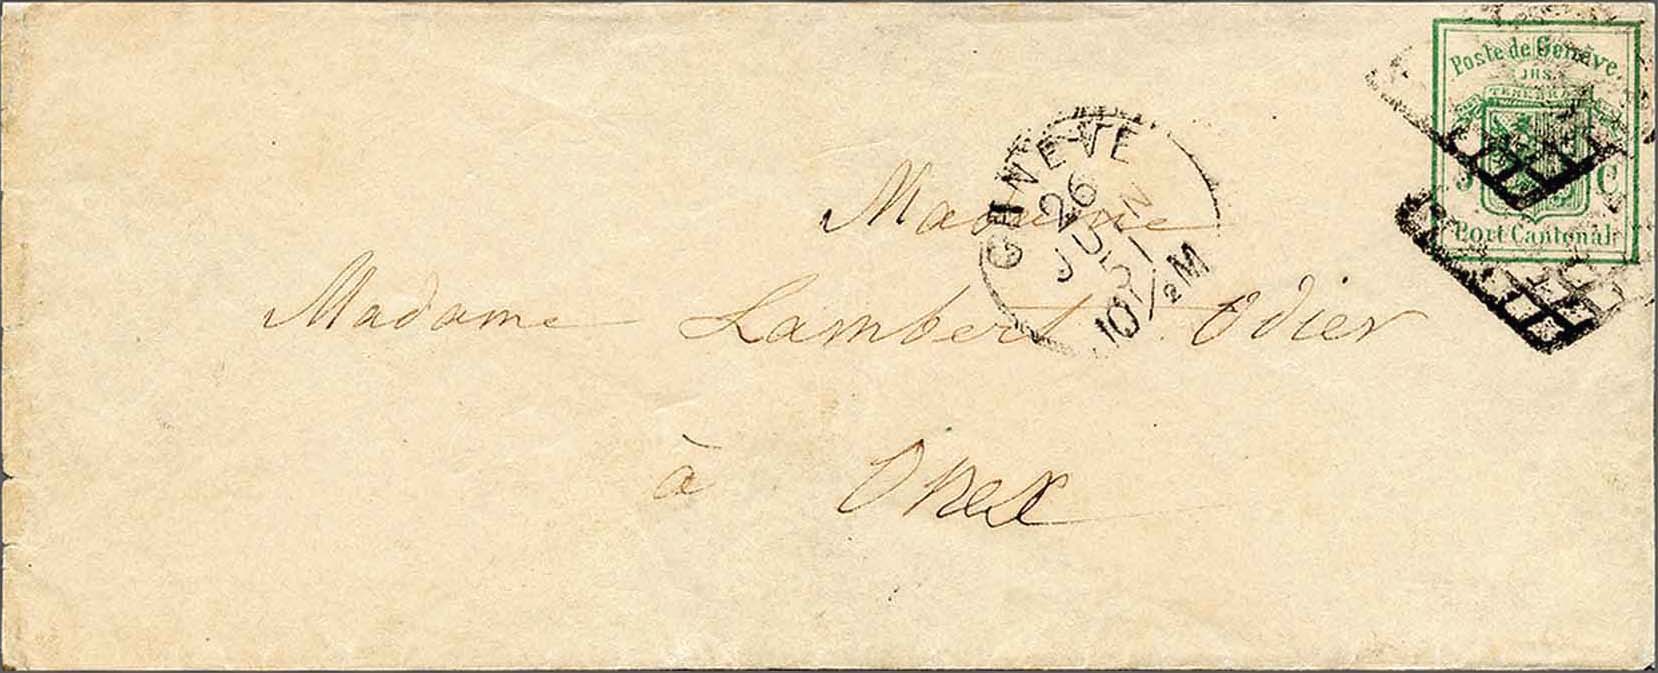 Poste de Genève
JHS.
TENEBRA
5 C.
Port Cantonal.
GENEVE
26
JUIN
51
10 1/2 M
Madame
Madame Lambert Odier
à Onex